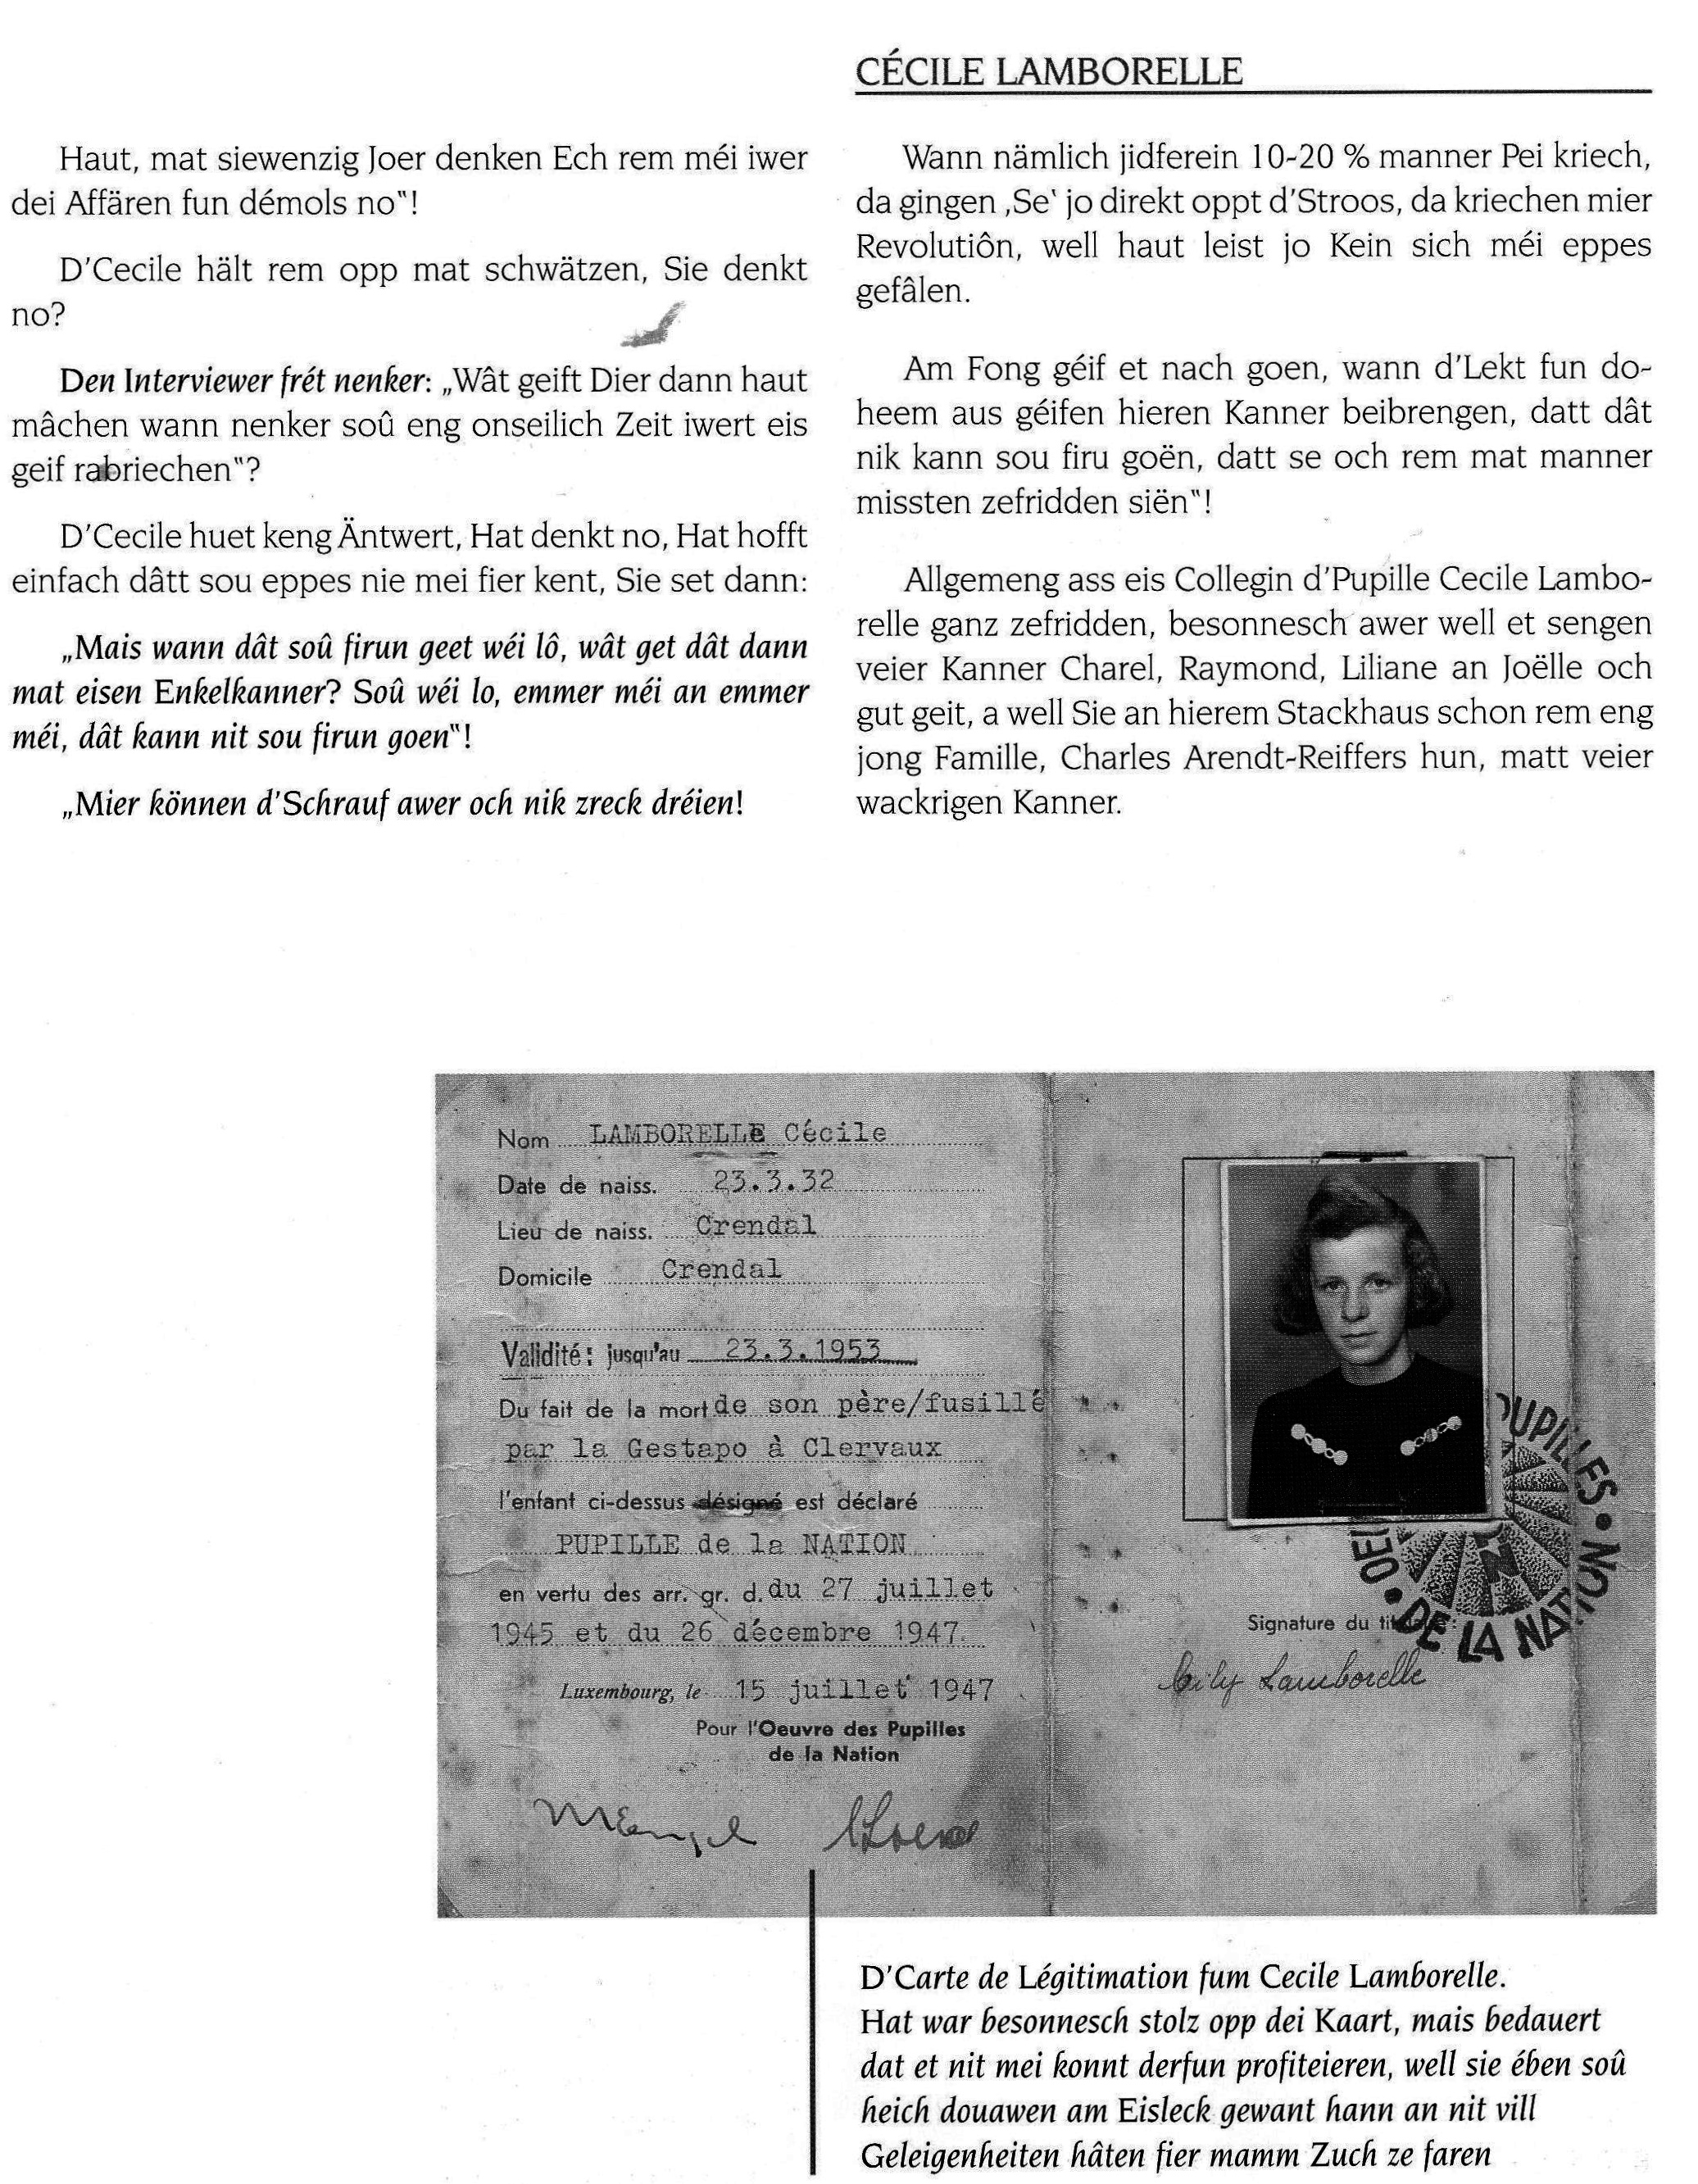 CÉCILE LAMBORELLE
Haut, mat siewenzig Joer denken Ech rem méi iwer
dei Affären fun démols no‟!
D'Cecile hält rem opp mat schwätzen, Sie denkt
no?
Den Interviewer frét nenker: „Wât geift Dier dann haut
mâchen wann nenker soû eng onseilich Zeit iwert eis
geif rabriechen‟?
D'Cecile huet keng Äntwert, Hat denkt no, Hat hofft
einfach dâtt sou eppes nie mei fier kent, Sie set dann:
„Mais wann dât soû firun geet wéi lô, wât get dât dann
mat eisen Enkelkanner? Soû wéi lo, emmer méi an emmer
méi, dât kann nit sou firun goen‟!
„Mier können d'Schrauf awer och nik zreck dréien!
Wann nämlich jidferein 10-20 % manner Pei kriech,
da gingen ‚Se‛ jo direkt oppt d'Stroos, da kriechen mier
Revolutiôn, well haut leist jo Kein sich méi eppes
gefâlen.
Am Fong géif et nach goen, wann d'Lekt fun do-
heem aus géifen hieren Kanner beibrengen, datt dât
nik kann sou firu goën, datt se och rem mat manner
missten zefridden siën‟!
Allgemeng ass eis Collegin d'Pupille Cecile Lambo-
relle ganz zefridden, besonnesch awer well et sengen
veier Kanner Charel, Raymond, Liliane an Joëlle och
gut geit, a well Sie an hierem Stackhaus schon rem eng
jong Famille, Charles Arendt-Reiffers hun, matt veier
wackrigen Kanner.
Nom LAMBORELLE Cécile
Date de naiss. 23.3.32
Lieu de naiss. Crendal
Domicile Crendal
Validité: jusqu'au 23.3.1953
Du fait de la mort de son père/fusillé
par la Gestapo à Clervaux
l'enfant ci-dessus désigné est déclaré
PUPILLE de la NATION
en vertu des arr. gr. d. du 27 juillet
1945 et du 26 décembre 1947.
Luxembourg, le 15 juillet 1947
Pour l'Oeuvre des Pupilles
de la Nation
PUPILLES
DE LA NAT
Signature du
Cily Lamborelle
D'Carte de Légitimation fum Cecile Lamborelle.
Hat war besonnesch stolz opp dei Kaart, mais bedauert
dat et nit mei konnt derfun profiteieren, well sie ében soû
heich douawen am Eisleck gewant hann an nit vill
Geleigenheiten hâten fier mamm Zuch ze faren